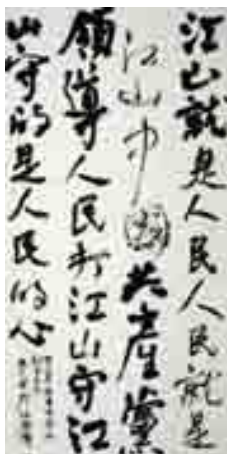 江山就是人民人民就是
江山中国共产黨
領導人民打江山守江
山守的是人民的心